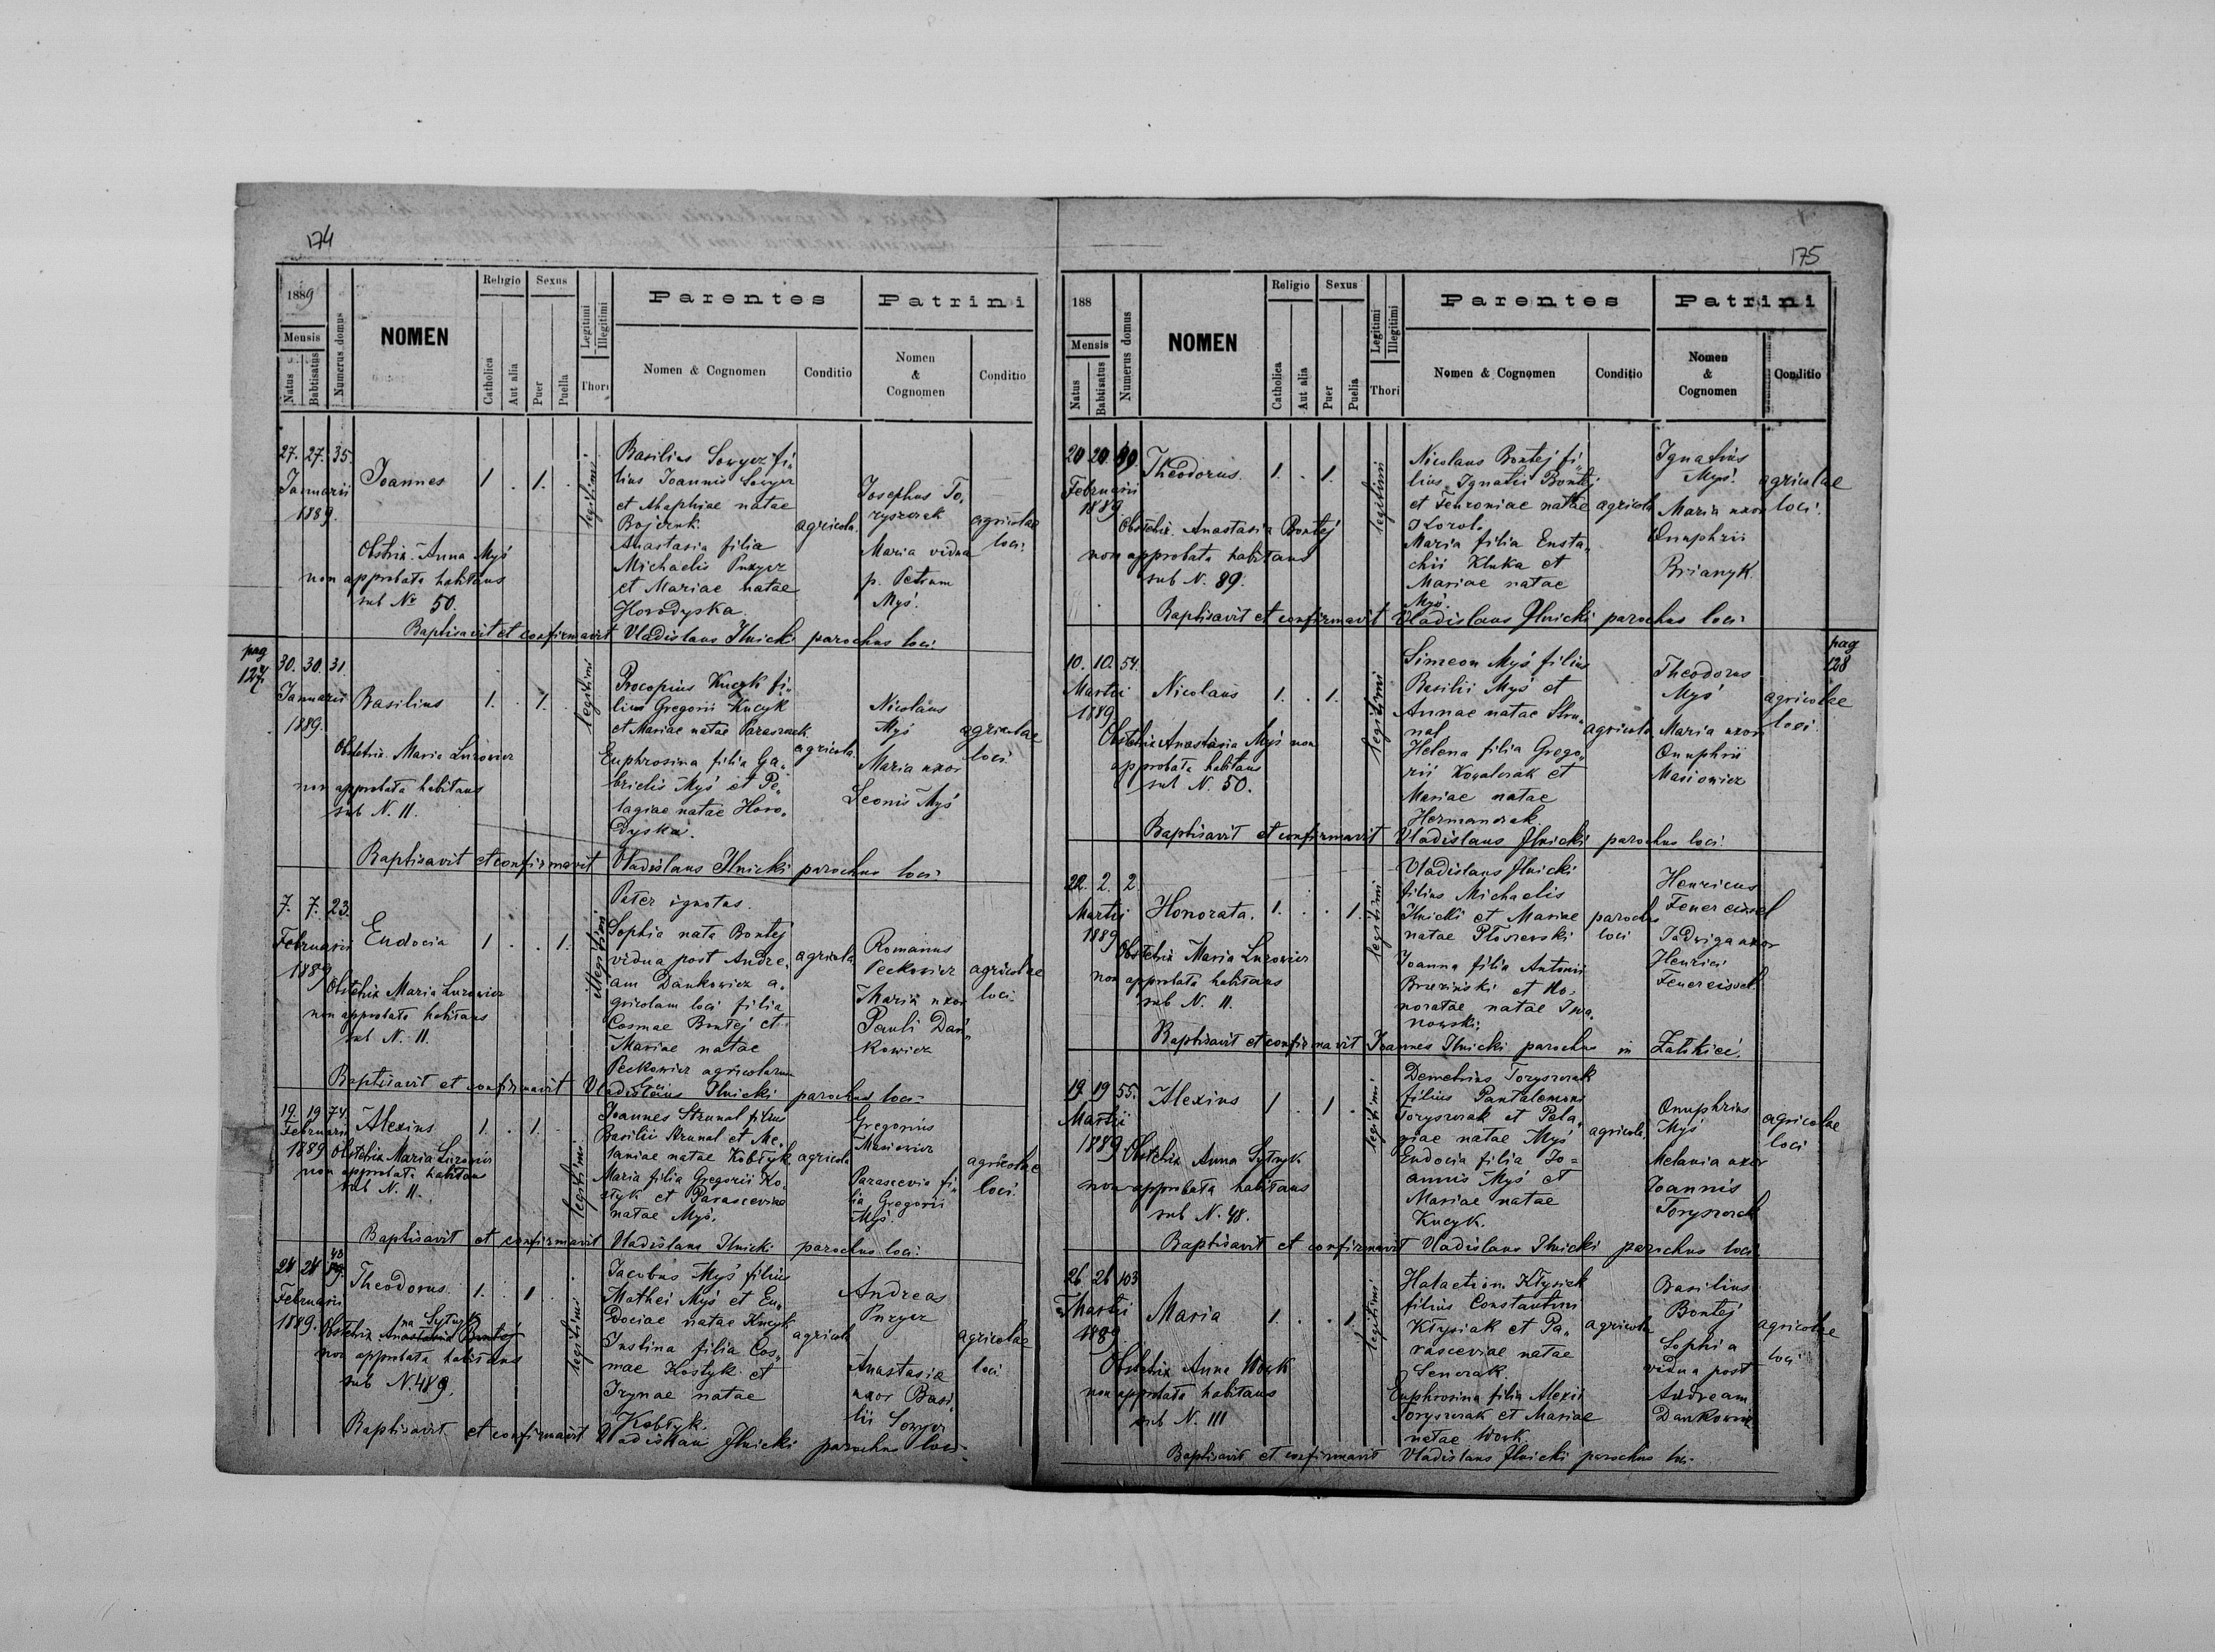 174
1889
Mensis
Natus
Babtisatus
Numerus domus
NOMEN
Religio
Catholica
Aut alia
Sexus
Puer
Puella
Legitimi
Illegitimi
Thori
Parentes
Nomen & Cognomen
Conditio
Patrini
Nomen
&
Cognomen
Conditio
27. 27. 35.
Januarii
1889.
Joannes
1 . 1. .
legitimi
Basilius Sowycz fi„
lius Joannis Sowycz
et Ahaphiae natae
Bojczuk.
Anastasia filia
Michaelis Puzycz
et Mariae natae
Horodyska.
agricola.
Josephus To„
ryszczak
Maria vidua
p. Petrum
Myś.
agricolae
loci.
Obstrix Anna Myś
non approbata habitans
sub No 50.
Baptisavit et confirmavit Vladislaus Ilnicki parochus loci.
pag
127.
30. 30. 31.
Januarii
1889.
Basilius
1. . 1.
legitimi
Procopius Kucyk fi„
lius Gregorii Kucyk
et Mariae natae Parasczak.
Euphrosina filia Ga„
brielis Myś et Pe„
lagiae natae Horo„
dyska.
agricola.
Nicolaus
Myś
Maria uxor
Leonis Myś
agricolae
loci.
Obstetrix Maria Lurowicz
non approbata habitans
sub N. 11.
Baptisavit et confirmavit Vladislaus Ilnicki parochus loci.
7. 7. 23.
Februarii
1889
Eudocia
1 . . 1.
illegitimi
Pater ignotus.
Sophia nata Bontej
vidua post Andre„
am Dankowicz a„
gricolam loci filia
Cosmae Bontej et
Mariae natae
Peckowicz agricolarum
loci.
agricola
Romanus
Peckowicz
Maria uxor
Pauli Dań„
kowicz
agricolae
loci.
Obstetrix Maria Lurowicz
non approbata habitans
sub N. 11.
Baptisavit et confirmavit Vladislaus Ilnicki parochus loci.
19. 19 74.
Februarii
1889
Alexius
1. . 1. .
legitimi
Joannes Strunal filius
Basilii Strunal et Me„
laniae natae Kobłyk
Maria filia Gregorii Ko„
styk et Parasceviae
natae Myś.
agricola
Gregorius
Masiowicz
Parascevia fi„
lia Gregorii
Myś.
agricolae
loci.
Obstetrix Maria Lurowicz
non approbata habitans
sub N. 11.
Baptisavit et confirmavit Vladislaus Ilnicki parochus loci.
24 24 40
Februarii
1889.
Theodorus
1. . 1 .
legitimi
Jacobus Myś filius
Mathei Myś et Eu„
dociae natae Kucyk
Justina filia Cos„
mae Kostyk et
Irynae natae
Kobłyk.
agricola
Andreas
Puzycz
Anastasia
uxor Basi„
lii Sowycz
agricolae
loci
na Sytnyk
Obstetrix Anastasia Bontej
non approbata habitans
sub N. 489.
Baptisavit et confirmavit Vladislaus Ilnicki parochus loci.
175
188
Mensis
Natus
Babtisatus
Numerus domus
NOMEN
Religio
Catholica
Aut alia
Sexus
Puer
Puella
Legitimi
Illegitimi
Thori
Parentes
Nomen & Cognomen
Conditio
Patrini
Nomen
&
Cognomen
Conditio
20 20. 89.
Februarii
1889
Theodorus.
1. . 1.
legitimi
Nicolaus Bontej fi„
lius Ignatii Bontej
et Fehroniae natae
Korol.
Maria filia Eusta„
chii Kluka et
Mariae natae
Myś.
agricola
Ignatius
Myś.
Maria uxor
Onuphrii
Brianyk.
agricolae
loci.
Obstetrix Anastasia Bontej
non approbata habitans
sub N. 89.
Baptisavit et confirmavit Vladislaus Ilnicki parochus loci.
pag
128
10. 10. 54.
Martii
1889
Nicolaus
1. . 1.
legitimi
Simeon Myś filius
Basilii Myś et
Annae natae Stru„
nal
Helena filia Grego„
rii Kowalczak et
Mariae natae
Hermanczak.
agricola.
Theodorus
Myś
Maria uxor
Onuphrii
Masiowicz
agricolae
loci.
Obstetrix Anastasia Myś non
approbata habitans
sub N. 50.
Baptisavit et confirmavit Vladislaus Ilnicki parochus loci.
22. 2. 2.
Martii
1889
Honorata.
1. . . 1.
legitimi
Vladislaus Ilnicki
filius Michaelis
Ilnicki et Mariae
natae Płoszewski
Joanna filia Antonii
Brzezinski et Ho„
noratae natae Iwa„
nowski.
parochus
loci
Henricus
Feuereisel
Jadwiga uxor
Henrici
Feuereisel
Obstetrix Maria Lurowicz
non approbata habitans
sub N. 11.
Baptisavit et confirmavit Joannes Ilnicki parochus in Załokieć.
19. 19 55.
Martii
1889
Alexius
1 . 1 .
legitimi
Demetrius Toryszczak
filius Pantalemonis
Toryszczak et Pela„
giae natae Myś
Eudocia filia Jo=
annis Myś et
Mariae natae
Kucyk.
agricola.
Onuphrius
Myś
Melania uxor
Joannis
Toryszczak
agricolae
loci
Obstetrix Anna Sytnyk
non approbata habitans
sub N. 48.
Baptisavit et confirmavit Vladislaus Ilnicki parochus loci
26. 26 103
Martii
1889
Maria
1. . . 1.
legitimi
Halaction Kłysiak
filius Constantini
Kłysiak et Pa„
rasceviae natae
Senczak.
Euphrosina filia Alexii
Toryszczak et Mariae
natae Work.
agricola
Basilius
Bontej
Sophia
vidua post
Andream
Dankowicz
agricolae
loci
Obstetrix Anna Work
non approbata habitans
sub N. 111
Baptisavit et confirmavit Vladislaus Ilnicki parochus loci.